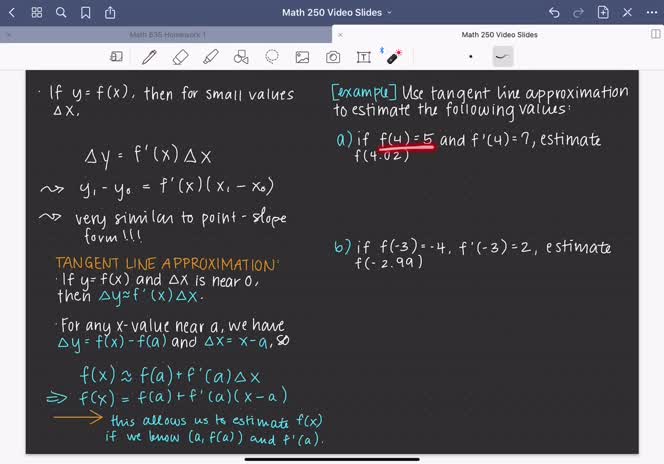 Math 250 Video Slides
Math B35 Homework 1
Math 250 Video Slides
· If y = f(x), then for small values
Δx,
Δy = f'(x) Δx
y₁ - y₀ = f'(x) (x₁ - x₀)
very similar to point-slope
form!!!
TANGENT LINE APPROXIMATION:
· If y = f(x) and Δx is near 0,
then Δy ≈ f'(x) Δx.
· For any x-value near a, we have
Δy = f(x) - f(a) and Δx = x - a, so
f(x) ≈ f(a) + f'(a) Δx
⇒ f(x) = f(a) + f'(a) (x - a)
→ this allows us to estimate f(x)
if we know (a, f(a)) and f'(a).
[example] Use tangent line approximation
to estimate the following values:
a) if f(4) = 5 and f'(4) = 7, estimate
f(4.02)
b) if f(-3) = -4, f'(-3) = 2, estimate
f(-2.99)